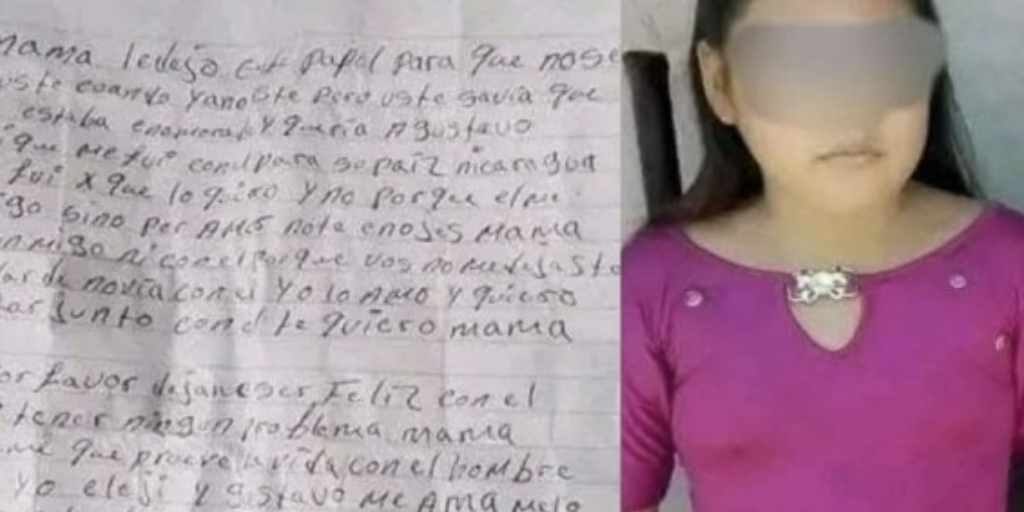 mama ledejo este papel para que nose
uste cuando yanoste pero uste savia que
estaba enamorada y queria Agustavo
que mefui conel para su paiz nicaragua
fui x que lo quiero y no porque el me
sino por AMO note enojes mama
conmigo ni conelporque vos nomedejaste
de novia con el yo lo AMO y quiero
junto conel te quiero mama
por favor dejameser Feliz con el
tener ningun problema mama
que prueve la vida con el hombre
yo eleji y gustavo me AMA melo